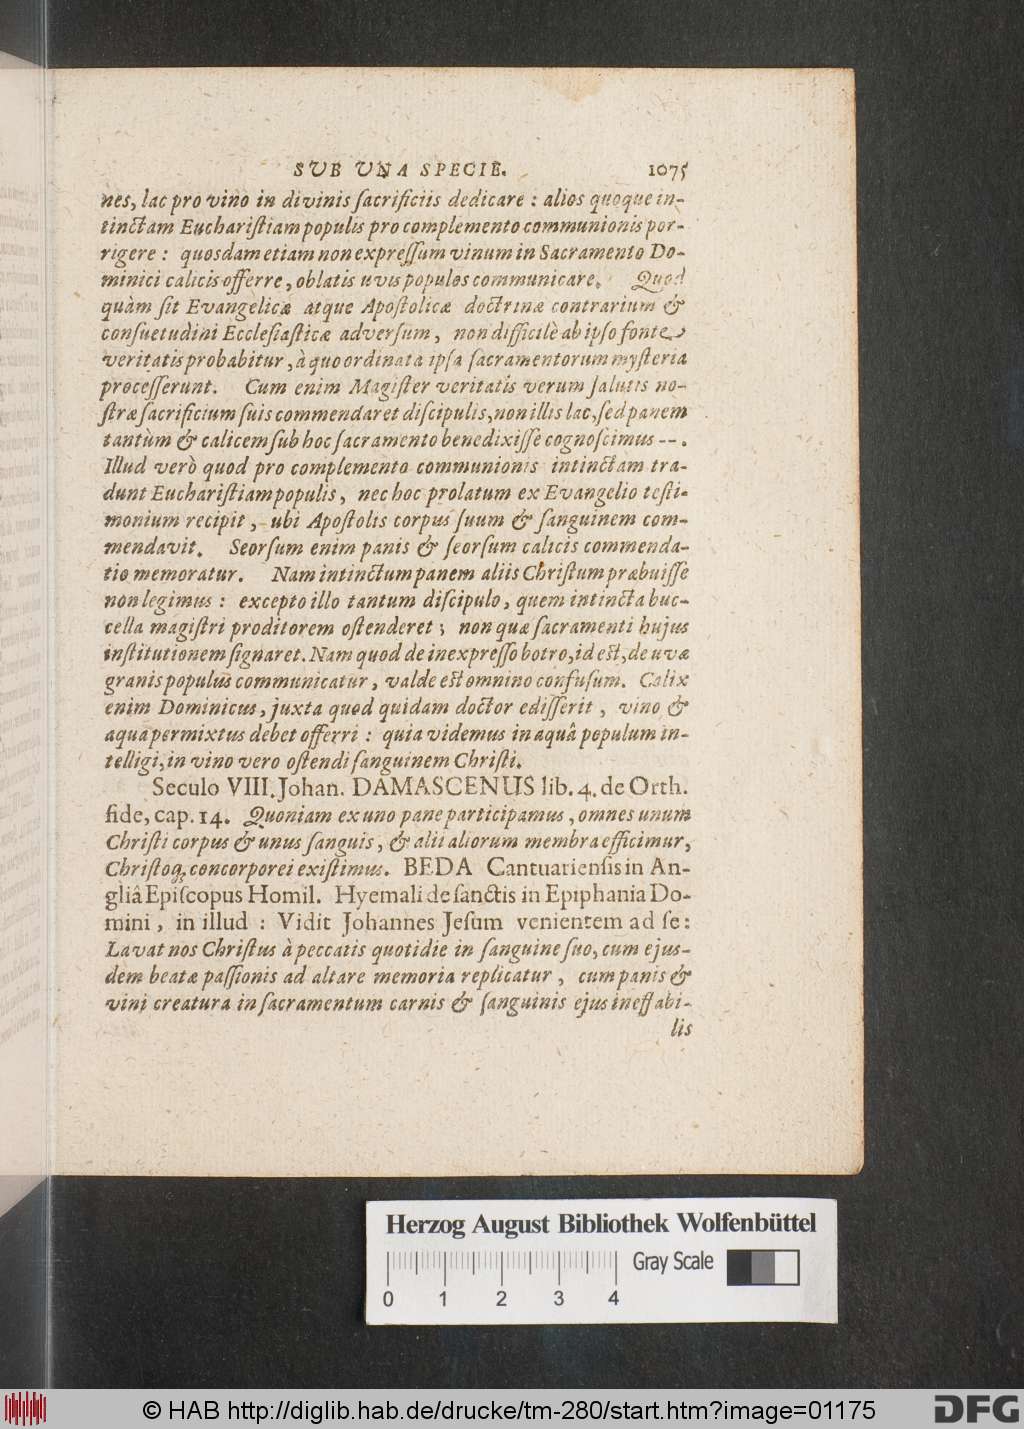 SVB VNA SPECIE. 1075
nes, lac pro vino in divinis ſacrificiis dedicare : alios quoque in-
tinctam Euchariſtiam populis pro complemento communionis por-
rigere : quosdam etiam non expreſſum vinum in Sacramento Do-
minici calicis offerre, oblatis uvis populos communicare. Quod
quàm ſit Evangelicæ atque Apoſtolicæ doctrinæ contrarium &
conſuetudini Eccleſiaſticæ adverſum, non difficilè ab ipſo fonte
veritatis probabitur, à quo ordinata ipſa ſacramentorum myſteria
proceſſerunt. Cum enim Magiſter veritatis verum ſalutis no-
ſtræ ſacrificium ſuis commendaret diſcipulis, non illis lac, ſed panem
tantùm & calicem ſub hoc ſacramento benedixiſſe cognoſcimus --.
Illud verò quod pro complemento communionis intinctam tra-
dunt Euchariſtiam populis, nec hoc prolatum ex Evangelio teſti-
monium recipit, ubi Apoſtolis corpus ſuum & ſanguinem com-
mendavit. Seorſum enim panis & ſeorſum calicis commenda-
tio memoratur. Nam intinctum panem aliis Chriſtum præbuiſſe
non legimus : excepto illo tantum diſcipulo, quem intincta buc-
cella magiſtri proditorem oſtenderet ; non quæ ſacramenti hujus
inſtitutionem ſignaret. Nam quod de inexpreſſo botro, id eſt, de uvæ
granis populus communicatur, valde eſt omnino confuſum. Calix
enim Dominicus, juxta quod quidam doctor ediſſerit, vino &
aqua permixtus debet offerri : quia videmus in aquâ populum in-
telligi, in vino vero oſtendi ſanguinem Chriſti.
Seculo VIII. Johan. DAMASCENUS lib. 4. de Orth.
fide, cap. 14. Quoniam ex uno pane participamus, omnes unum
Chriſti corpus & unus ſanguis, & alii aliorum membra efficimur,
Chriſtoq; concorporei exiſtimus. BEDA Cantuarienſis in An-
gliâ Epiſcopus Homil. Hyemali de ſanctis in Epiphania Do-
mini, in illud : Vidit Johannes Jeſum venientem ad ſe:
Lavat nos Chriſtus à peccatis quotidie in ſanguine ſuo, cum ejus-
dem beatæ paſſionis ad altare memoria replicatur, cum panis &
vini creatura in ſacramentum carnis & ſanguinis ejus ineffabi-
lis
Herzog August Bibliothek Wolfenbüttel
Gray Scale
0 1 2 3 4
© HAB http://diglib.hab.de/drucke/tm-280/start.htm?image=01175
DFG